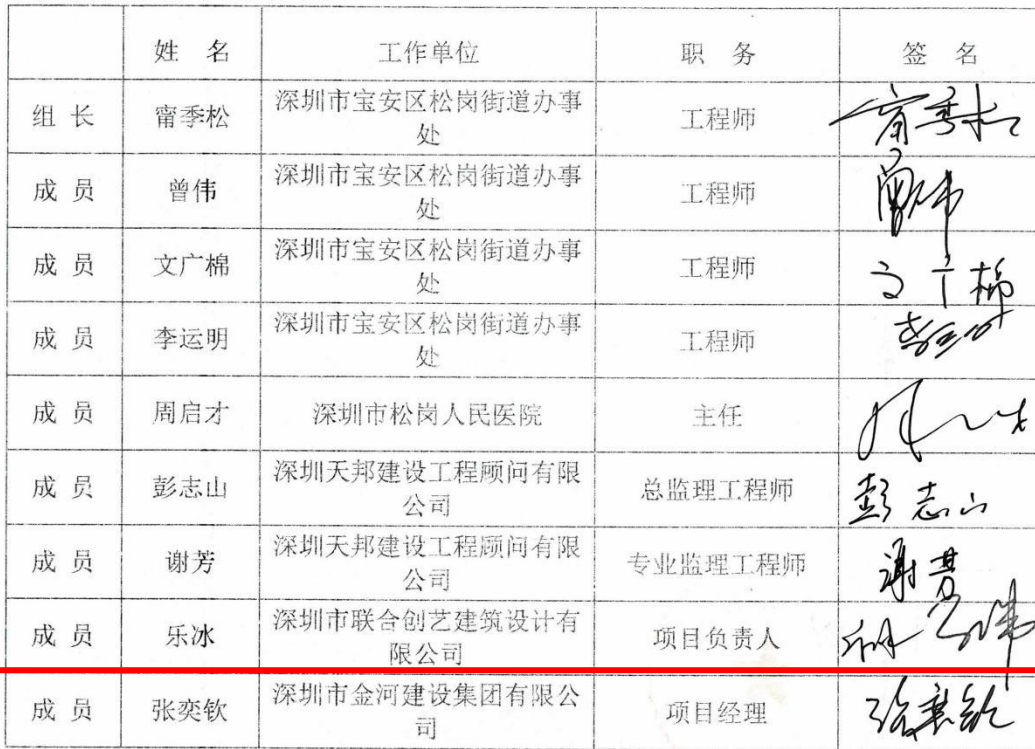 姓 名 工作单位 职 务 签 名
组 长 甯季松 深圳市宝安区松岗街道办事处 工程师 甯季松
成 员 曾伟 深圳市宝安区松岗街道办事处 工程师 曾伟
成 员 文广棉 深圳市宝安区松岗街道办事处 工程师 文广棉
成 员 李运明 深圳市宝安区松岗街道办事处 工程师 李运明
成 员 周启才 深圳市松岗人民医院 主任
成 员 彭志山 深圳天邦建设工程顾问有限公司 总监理工程师 彭志山
成 员 谢芳 深圳天邦建设工程顾问有限公司 专业监理工程师 谢芳
成 员 乐冰 深圳市联合创艺建筑设计有限公司 项目负责人
成 员 张奕钦 深圳市金河建设集团有限公司 项目经理 张奕钦